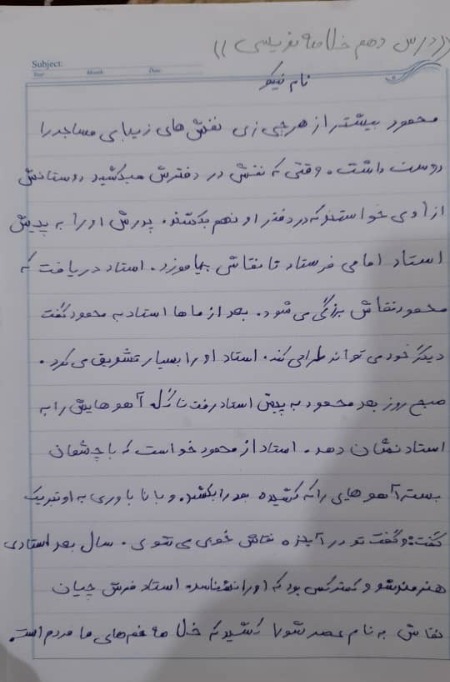 ((درس دهم خلاصه نویسی))
Subject:
Year Month Date
نام نیکو
محمود بیشتر از هر چی زی نقش های زیبای مساجد را
دوست داشت. وقتی که نقش در دفترش میکشید دوستانش
از او می خواستند که در دفتر او نهم بکشند. پدرش او را به پیش
استاد امامی فرستاد تا نقاشی بیاموزد. استاد دریافت که
محمود نقاش بزرگی می شود. بعد از ماها استاد به محمود گفت
دیگر خود می تواند طراحی کند. استاد او را بسیار تشویق می کرد.
صبح روز بعد محمود به پیش استاد رفت تا گله آهو هایش را به
استاد نشان دهد. استاد از محمود خواست که با چشمان
بسته آهو های را که کشیده بعد را بکشد. و با نا باوری به او تبریک
گفت و گفت تو در آینده نقاش خوبی می شوی. سال بعد استادی
هنرمند شد و کمتر کس بود که او را نشناسد. استاد فرش چیان
نقاشی به نام عصر عاشورا کشید که خلاصه غم های ما مردم است.